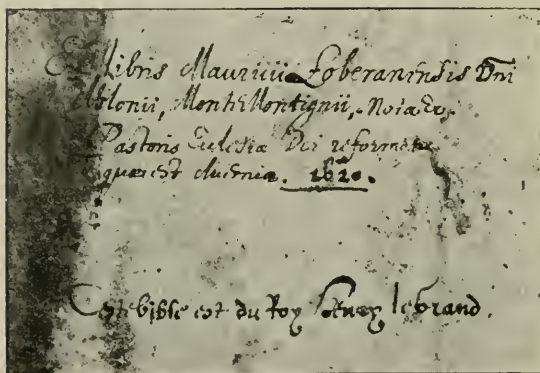 Ex libris Mauritii Loberanensis Dni
Ablonii, Mont. Montignii,
Pastoris Eclesiæ Dei reformatæ
quæ est 1620.
Cestebible est du Roy Henry legrand.